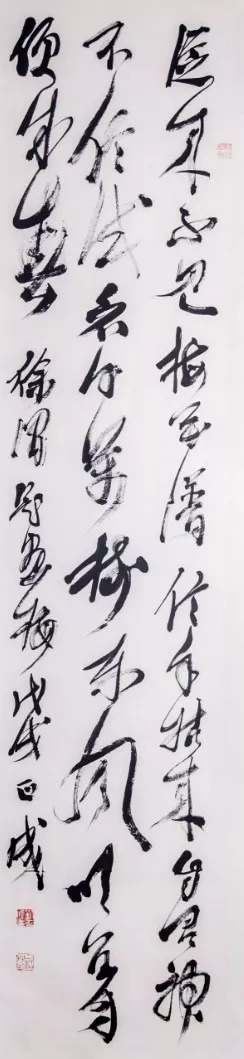 從來不見梅花譜信手拈來自有神
不信試看千萬樹東風吹著
便成春 徐渭題畫梅 戊戌 正成